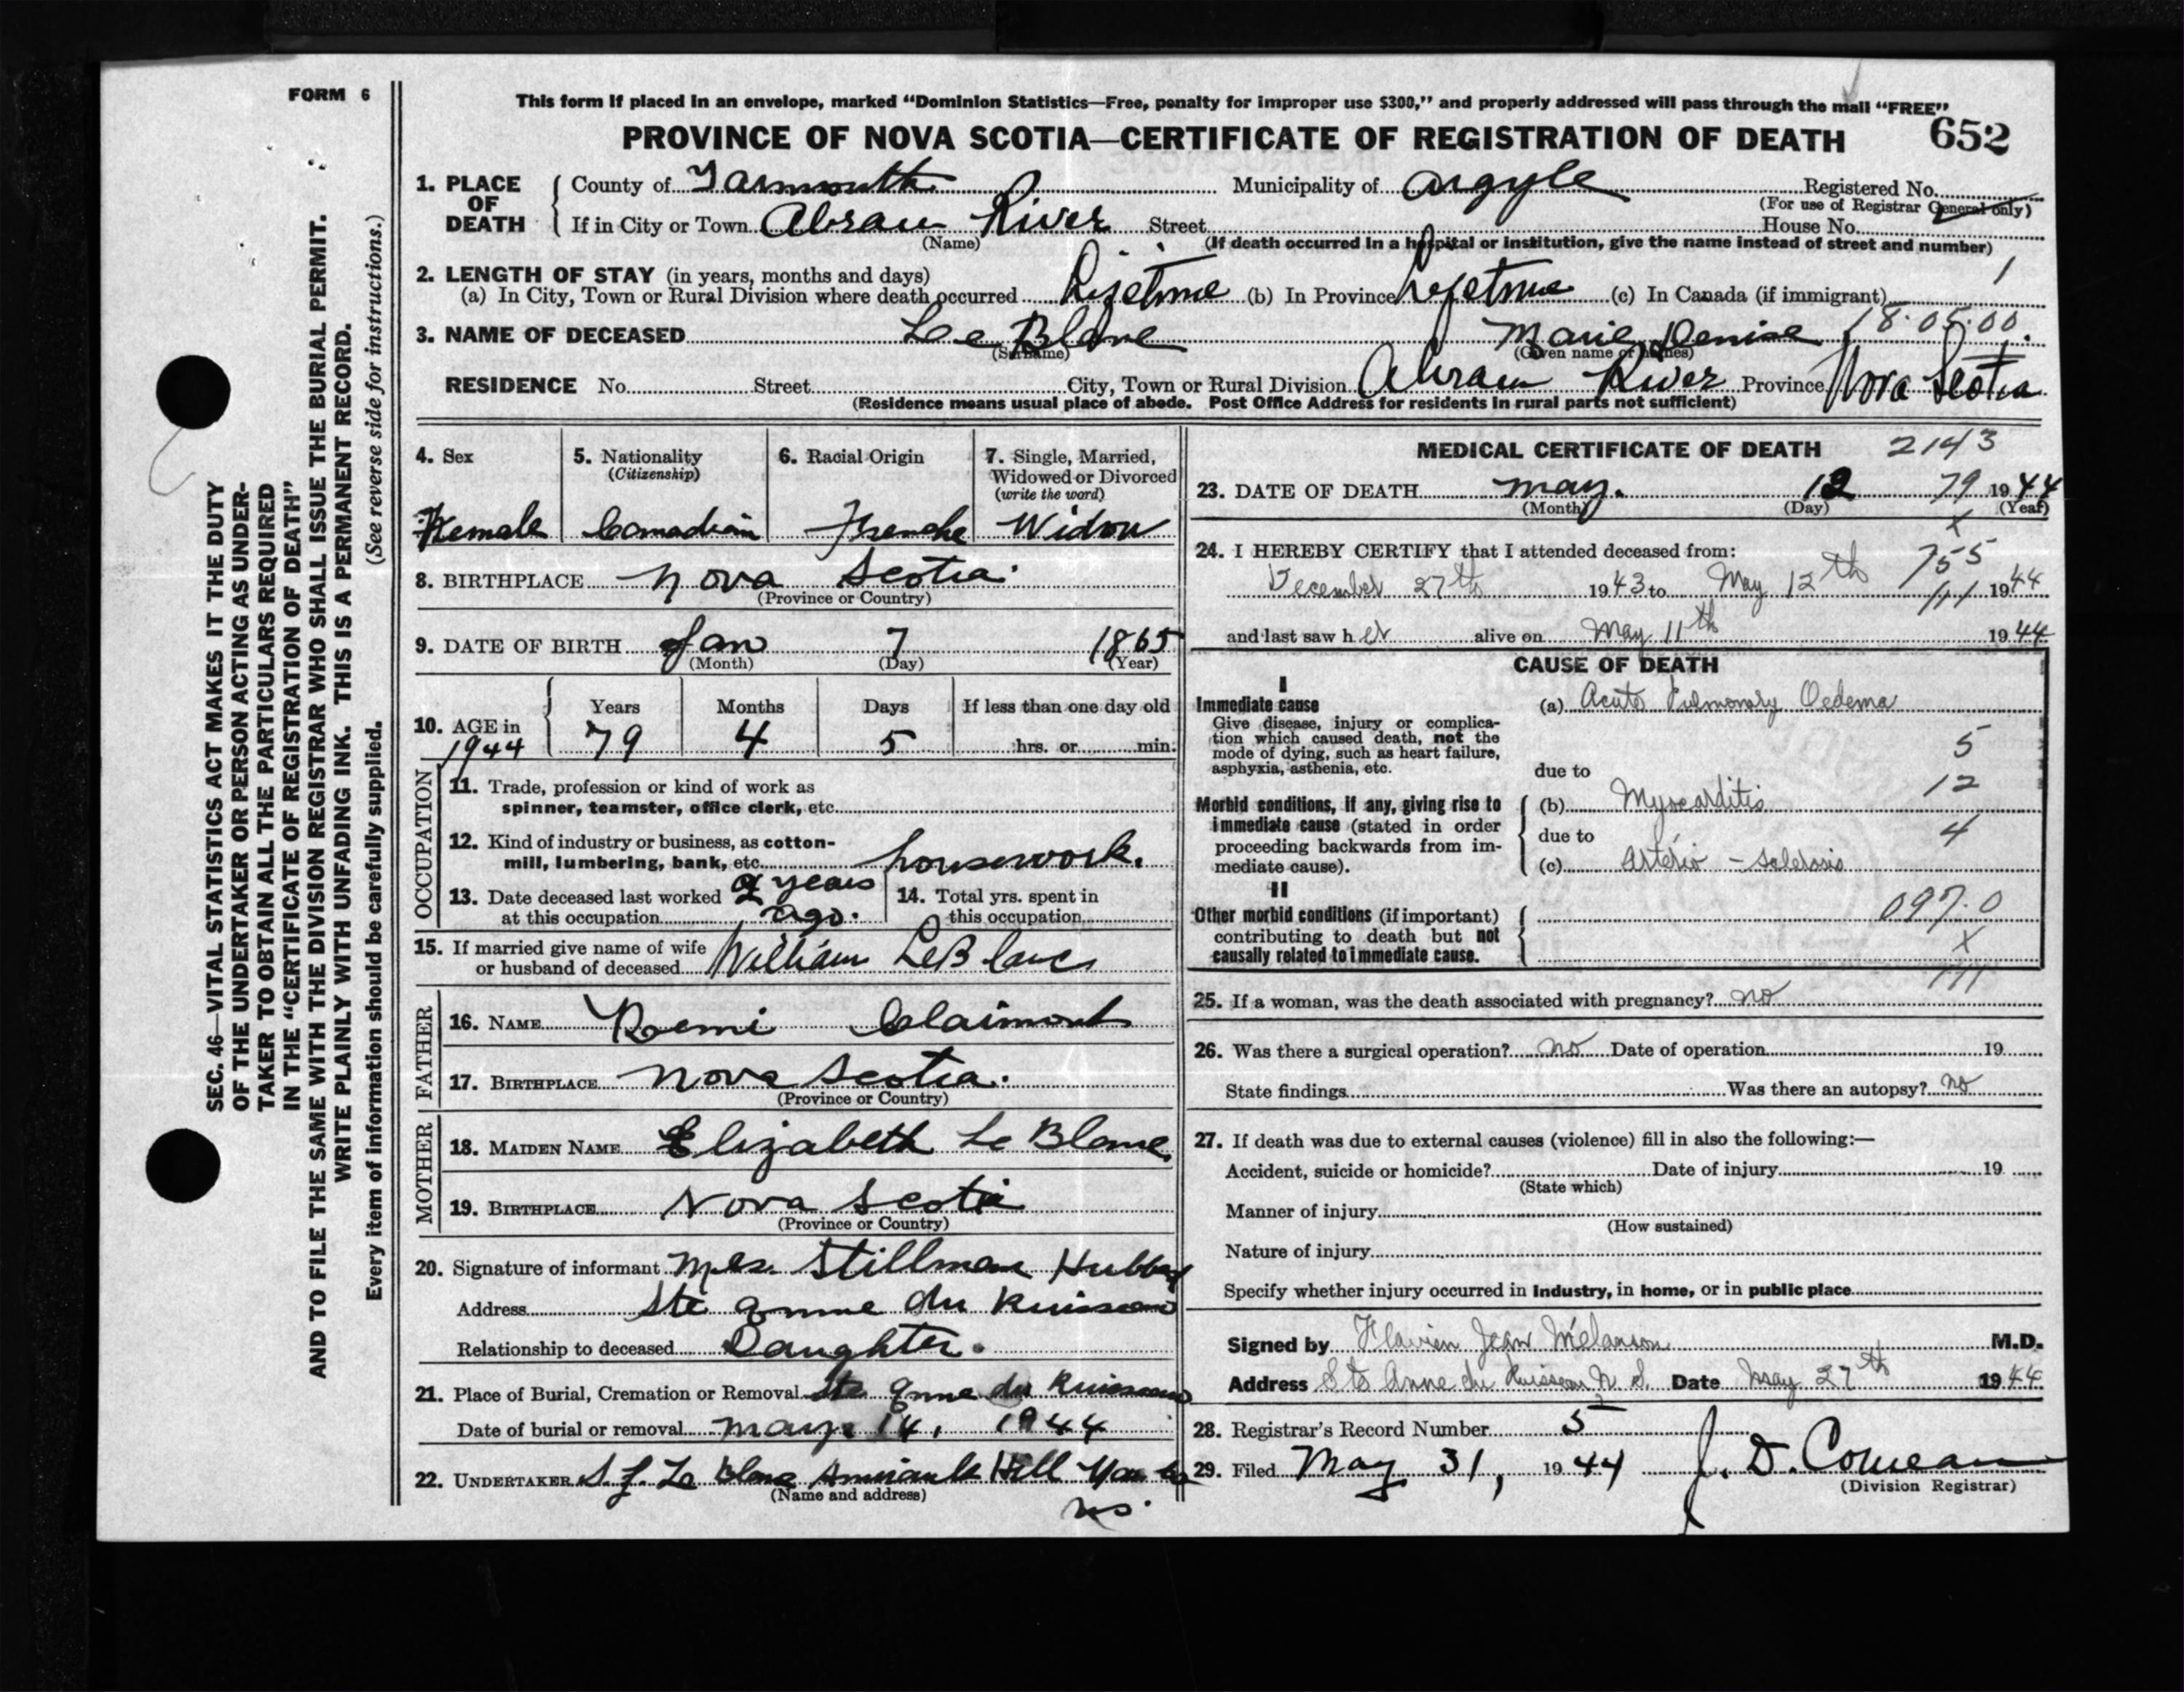 FORM 6
This form if placed in an envelope, marked “Dominion Statistics—Free, penalty for improper use $300,” and properly addressed will pass through the mail “FREE”
PROVINCE OF NOVA SCOTIA—CERTIFICATE OF REGISTRATION OF DEATH 652
1. PLACE OF DEATH County of Yarmouth Municipality of Argyle Registered No.
(For use of Registrar General only)
If in City or Town Abram River Street House No.
(Name) (If death occurred in a hospital or institution, give the name instead of street and number)
2. LENGTH OF STAY (in years, months and days) 1
(a) In City, Town or Rural Division where death occurred Lifetime (b) In Province Lifetime (c) In Canada (if immigrant)
3. NAME OF DECEASED Le Blanc Marie Denise 18.05.00
(Surname) (Given name or names)
RESIDENCE No. Street City, Town or Rural Division Abram River Province Nova Scotia
(Residence means usual place of abode. Post Office Address for residents in rural parts not sufficient)
4. Sex 5. Nationality (Citizenship) 6. Racial Origin 7. Single, Married, Widowed or Divorced (write the word)
Female Canadian Frenche Widow
8. BIRTHPLACE Nova Scotia
(Province or Country)
9. DATE OF BIRTH Jan 7 1865
(Month) (Day) (Year)
10. AGE in 1944 Years Months Days If less than one day old
79 4 5 hrs. or min.
OCCUPATION
11. Trade, profession or kind of work as
spinner, teamster, office clerk, etc.
12. Kind of industry or business, as cotton-
mill, lumbering, bank, etc. housework.
13. Date deceased last worked at this occupation 2 years ago. 14. Total yrs. spent in this occupation
15. If married give name of wife
or husband of deceased William LeBlanc
FATHER
16. NAME Remi Clairmont
17. BIRTHPLACE Nova Scotia.
(Province or Country)
MOTHER
18. MAIDEN NAME Elizabeth Le Blanc
19. BIRTHPLACE Nova Scotia
(Province or Country)
20. Signature of informant Mrs. Stillman Hubbard
Address Ste Anne du Ruisseau
Relationship to deceased Daughter.
21. Place of Burial, Cremation or Removal Ste Anne du Ruisseau
Date of burial or removal May 14, 1944
22. UNDERTAKER S. J. Le Blanc Amirault Hill Yar Co
(Name and address) NS.
MEDICAL CERTIFICATE OF DEATH 2143
23. DATE OF DEATH May. 12 79 1944
(Month) (Day) (Year)
X
24. I HEREBY CERTIFY that I attended deceased from: 755
December 27th 1943 to May 12th 111 1944
and last saw her alive on May 11th 1944
CAUSE OF DEATH
I
Immediate cause (a) Acute Pulmonary Oedema
Give disease, injury or complica-
tion which caused death, not the
mode of dying, such as heart failure,
asphyxia, asthenia, etc. 5
due to 12
Morbid conditions, if any, giving rise to (b) Myocarditis
immediate cause (stated in order due to 4
proceeding backwards from im-
mediate cause). (c) Arterio - sclerosis
II
Other morbid conditions (if important) 097.0
contributing to death but not X
causally related to immediate cause.
111
25. If a woman, was the death associated with pregnancy? no
26. Was there a surgical operation? no Date of operation 19
State findings Was there an autopsy? no
27. If death was due to external causes (violence) fill in also the following:—
Accident, suicide or homicide? Date of injury 19
(State which)
Manner of injury
(How sustained)
Nature of injury
Specify whether injury occurred in industry, in home, or in public place
Signed by Flavien Jean Melanson M.D.
Address Ste Anne du Ruisseau N.S. Date May 27th 1944
28. Registrar's Record Number 5
29. Filed May 31, 1944 J. D. Comeau
(Division Registrar)
SEC. 46—VITAL STATISTICS ACT MAKES IT THE DUTY
OF THE UNDERTAKER OR PERSON ACTING AS UNDER-
TAKER TO OBTAIN ALL THE PARTICULARS REQUIRED
IN THE “CERTIFICATE OF REGISTRATION OF DEATH”
AND TO FILE THE SAME WITH THE DIVISION REGISTRAR WHO SHALL ISSUE THE BURIAL PERMIT.
WRITE PLAINLY WITH UNFADING INK. THIS IS A PERMANENT RECORD.
Every item of information should be carefully supplied. (See reverse side for instructions.)